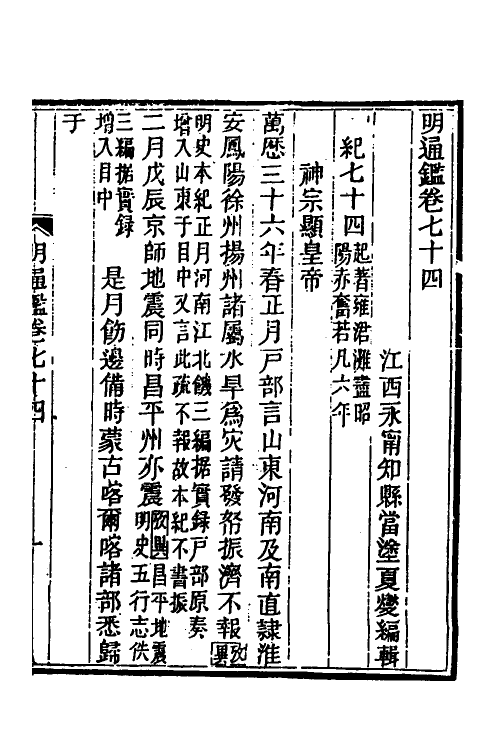 明通鑑卷七十四
江西永甯知縣當塗夏燮編輯
紀七十四起著雍涒灘盡昭陽赤奮若凡六年
神宗顯皇帝
萬歷三十六年春正月戶部言山東河南及南直隸淮
安鳳陽徐州揚州諸屬水旱爲災請發帑振濟不報攷異
明史本紀正月河南江北饑三編据實錄戶部原奏
增入山東于目中又言此疏不報故本紀不書振
二月戊辰京師地震同時昌平州亦震攷異昌平地震明史五行志佚
三編据實錄增入目中是月飭邊備時蒙古喀爾喀諸部悉歸
于
明通鑑卷七十四
一